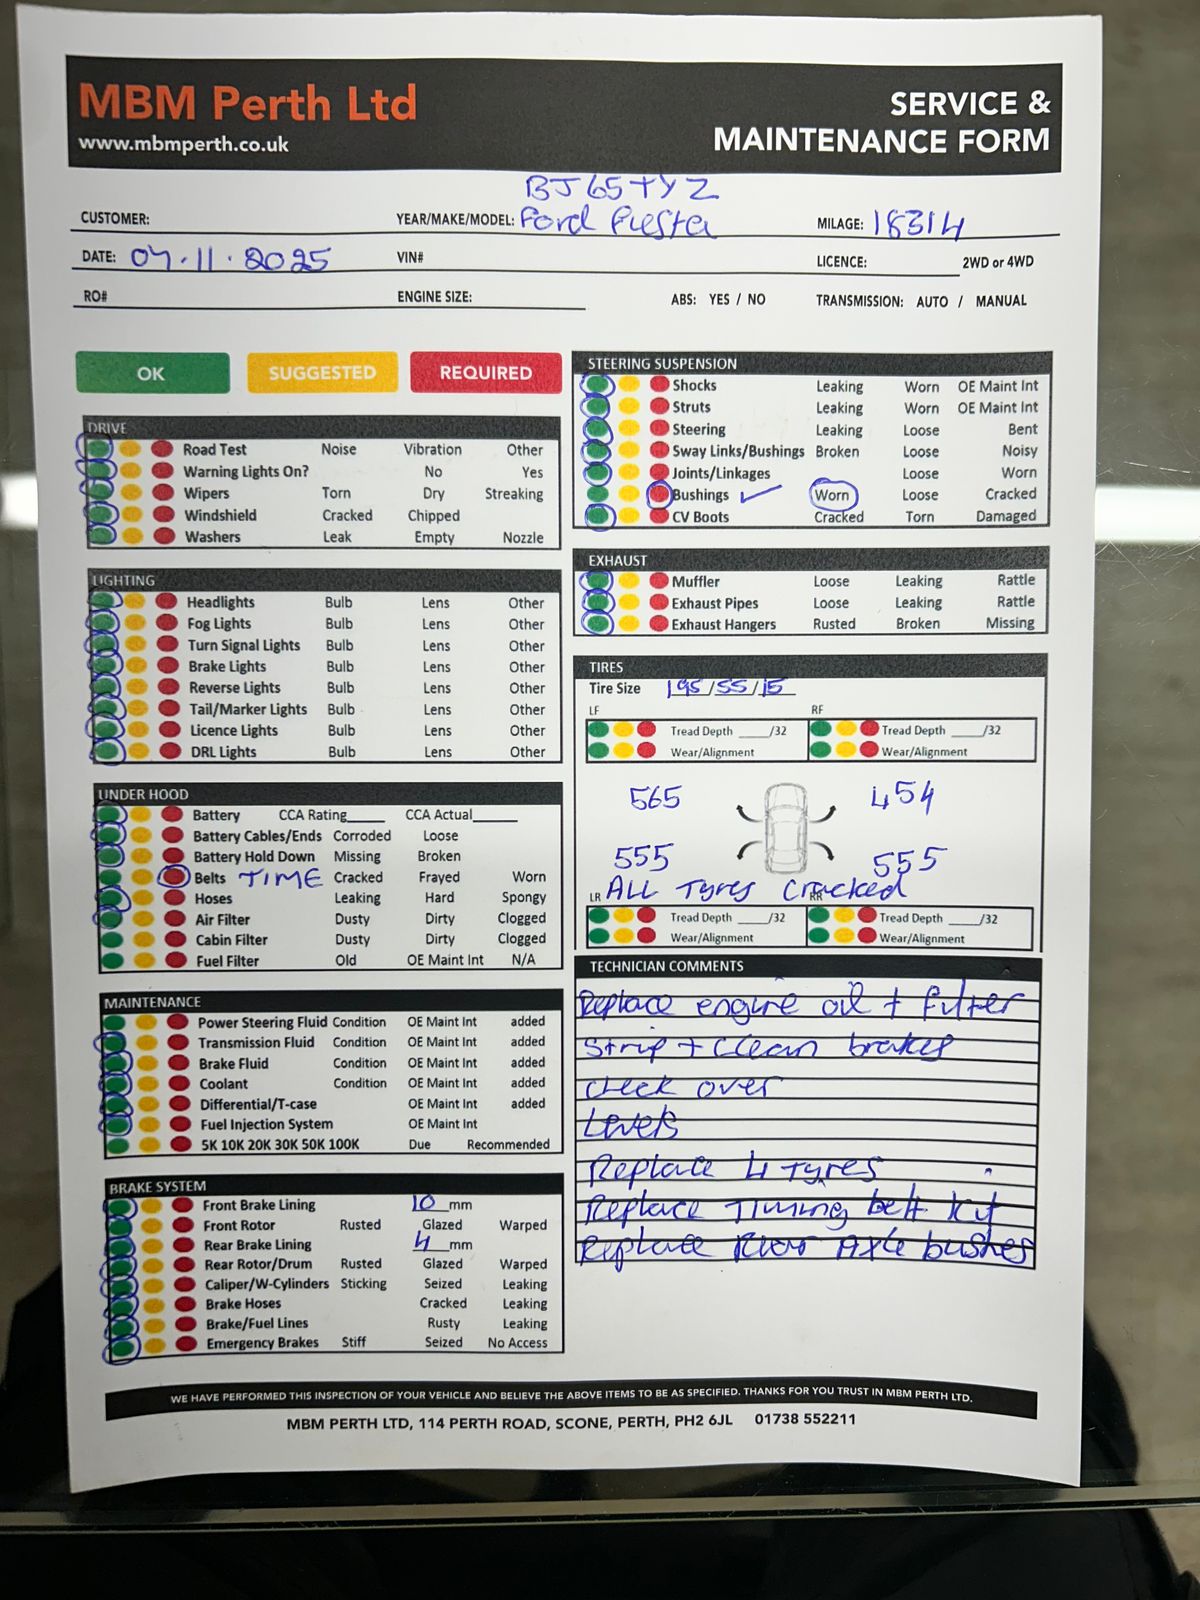 MBM Perth Ltd
www.mbmperth.co.uk
SERVICE &
MAINTENANCE FORM
BJ65TYZ
CUSTOMER: YEAR/MAKE/MODEL: Ford Fiesta MILAGE: 18314
DATE: 07.11.2025 VIN# LICENCE: 2WD or 4WD
RO# ENGINE SIZE: ABS: YES / NO TRANSMISSION: AUTO / MANUAL
OK SUGGESTED REQUIRED
DRIVE
Road Test Noise Vibration Other
Warning Lights On? No Yes
Wipers Torn Dry Streaking
Windshield Cracked Chipped
Washers Leak Empty Nozzle
LIGHTING
Headlights Bulb Lens Other
Fog Lights Bulb Lens Other
Turn Signal Lights Bulb Lens Other
Brake Lights Bulb Lens Other
Reverse Lights Bulb Lens Other
Tail/Marker Lights Bulb Lens Other
Licence Lights Bulb Lens Other
DRL Lights Bulb Lens Other
UNDER HOOD
Battery CCA Rating____ CCA Actual____
Battery Cables/Ends Corroded Loose
Battery Hold Down Missing Broken
Belts TIME Cracked Frayed Worn
Hoses Leaking Hard Spongy
Air Filter Dusty Dirty Clogged
Cabin Filter Dusty Dirty Clogged
Fuel Filter Old OE Maint Int N/A
MAINTENANCE
Power Steering Fluid Condition OE Maint Int added
Transmission Fluid Condition OE Maint Int added
Brake Fluid Condition OE Maint Int added
Coolant Condition OE Maint Int added
Differential/T-case OE Maint Int added
Fuel Injection System OE Maint Int
5K 10K 20K 30K 50K 100K Due Recommended
BRAKE SYSTEM
Front Brake Lining 10 mm
Front Rotor Rusted Glazed Warped
Rear Brake Lining 4 mm
Rear Rotor/Drum Rusted Glazed Warped
Caliper/W-Cylinders Sticking Seized Leaking
Brake Hoses Cracked Leaking
Brake/Fuel Lines Rusty Leaking
Emergency Brakes Stiff Seized No Access
STEERING SUSPENSION
Shocks Leaking Worn OE Maint Int
Struts Leaking Worn OE Maint Int
Steering Leaking Loose Bent
Sway Links/Bushings Broken Loose Noisy
Joints/Linkages Loose Worn
Bushings ✓ Worn Loose Cracked
CV Boots Cracked Torn Damaged
EXHAUST
Muffler Loose Leaking Rattle
Exhaust Pipes Loose Leaking Rattle
Exhaust Hangers Rusted Broken Missing
TIRES
Tire Size 195/55/15
LF RF
Tread Depth ____/32 Tread Depth ____/32
Wear/Alignment Wear/Alignment
565 454
555 555
LR ALL Tyres Cracked RR
Tread Depth ____/32 Tread Depth ____/32
Wear/Alignment Wear/Alignment
TECHNICIAN COMMENTS
Replace engine oil + filter
Strip + clean brakes
check over
Levels
Replace 4 Tyres
Replace Timing belt kit
Replace Rear Axle bushes
WE HAVE PERFORMED THIS INSPECTION OF YOUR VEHICLE AND BELIEVE THE ABOVE ITEMS TO BE AS SPECIFIED. THANKS FOR YOU TRUST IN MBM PERTH LTD.
MBM PERTH LTD, 114 PERTH ROAD, SCONE, PERTH, PH2 6JL 01738 552211